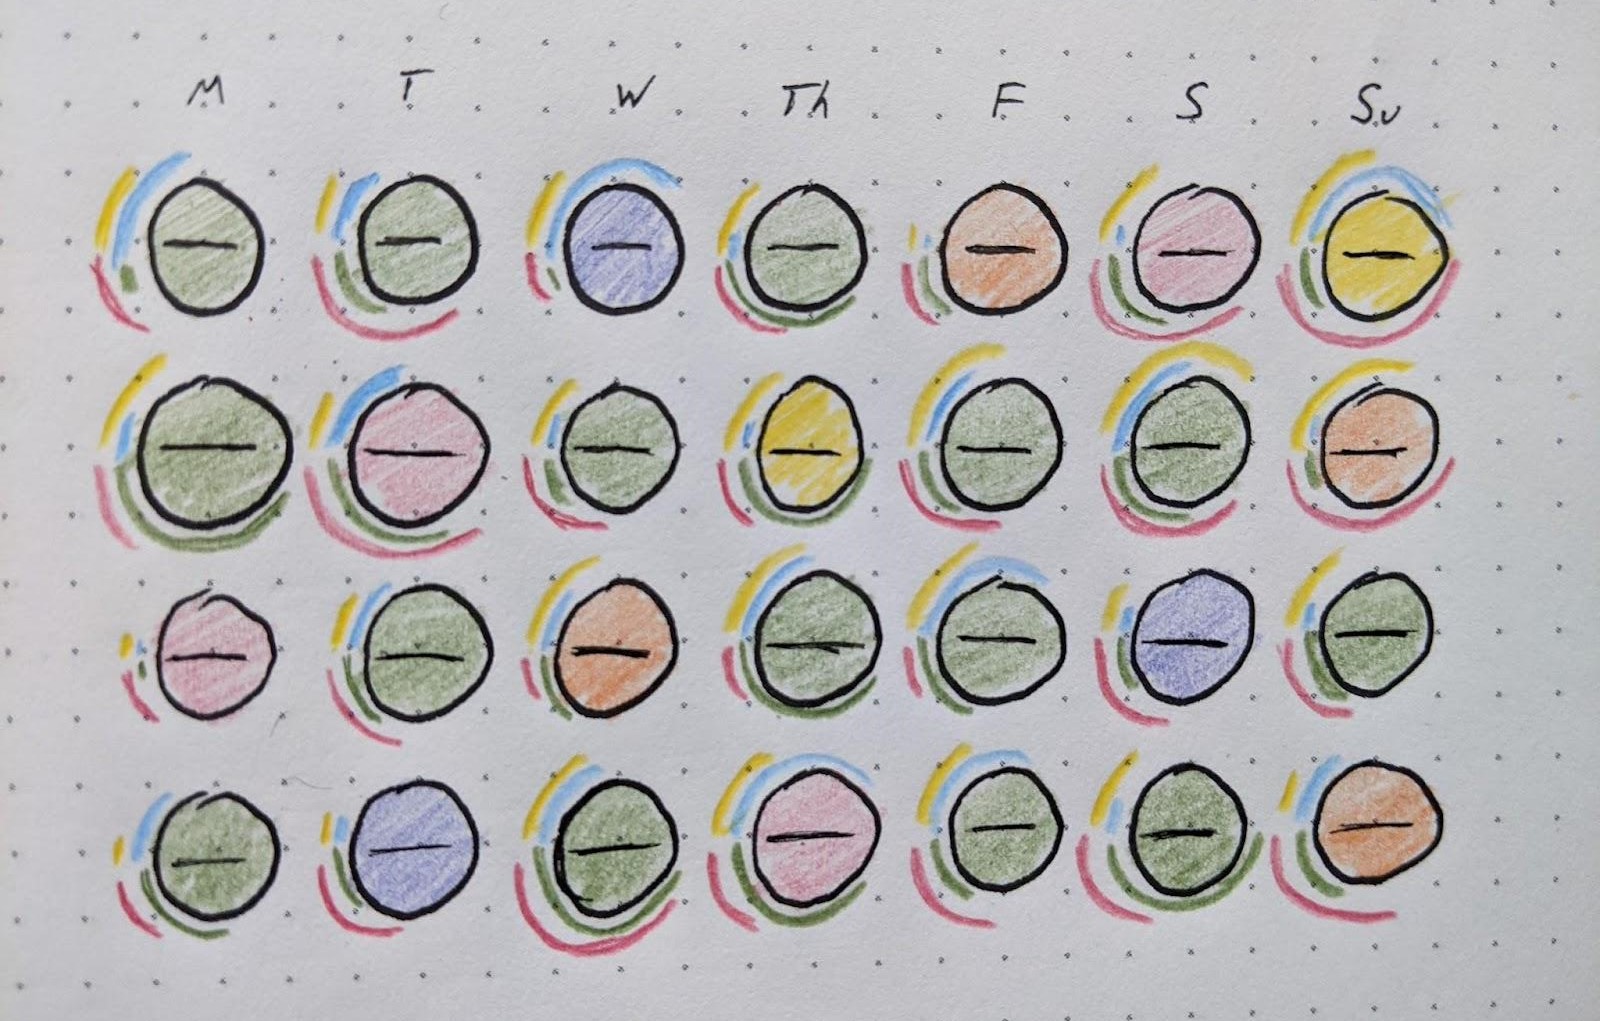 M T W Th F S Su